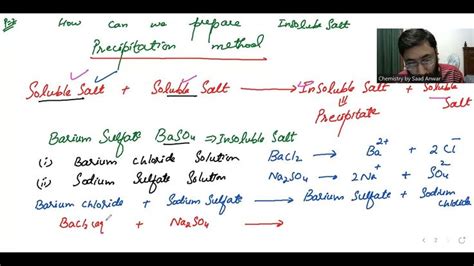 How can we prepare Insoluble Salt
Precipitation method
Chemistry by Saad Anwar
Soluble Salt + Soluble Salt → Insoluble Salt + Soluble Salt
Precipitate
Barium Sulfate BaSO4 ⇒ Insoluble Salt
(i) Barium Chloride Solution BaCl2 → Ba2+ + 2Cl-
(ii) Sodium Sulfate Solution Na2SO4 → 2Na+ + SO42-
Barium Chloride + Sodium Sulfate → Barium Sulfate + Sodium Chloride
BaCl2 (aq) + Na2SO4 →